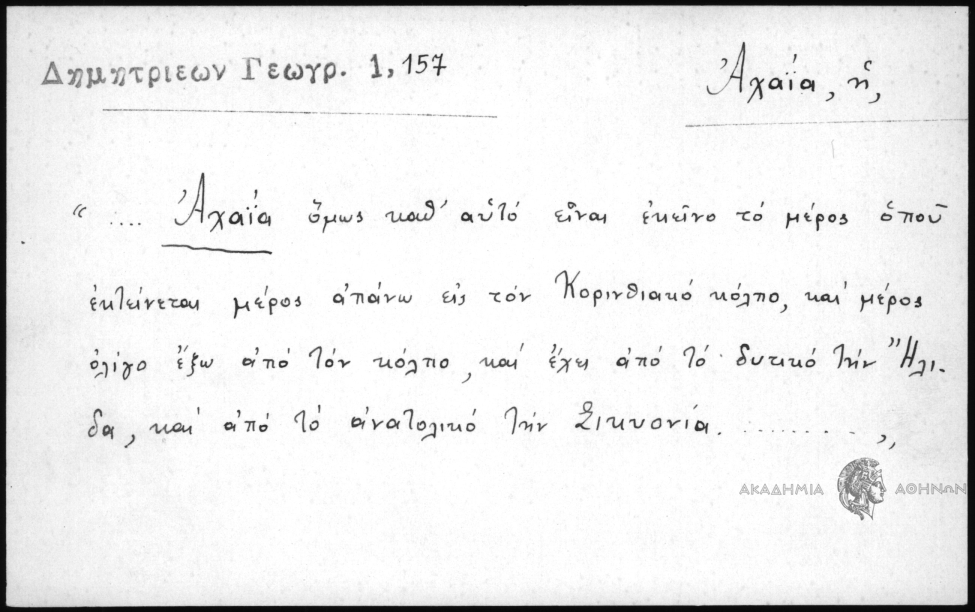 Δημητριεων Γεωγρ. 1, 157
Ἀχαΐα, ἡ,
“ .... Ἀχαΐα ὅμως καθ’ αὑτό εἶναι ἐκεῖνο τό μέρος ὁποῦ
ἐκτείνεται μέρος ἀπάνω εἰς τόν Κορινθιακό κόλπο, καί μέρος
ὀλίγο ἔξω ἀπό τόν κόλπο, καί ἔχει ἀπό τό δυτικό τήν Ἤλι-
δα, καί ἀπό τό ἀνατολικό τήν Σικυονία. ......... „
ΑΚΑΔΗΜΙΑ ΑΘΗΝΩΝ